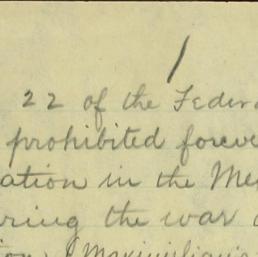 1
22 of the Feder
prohibited foreve
ation in the Me
ring the war
Maximilian's